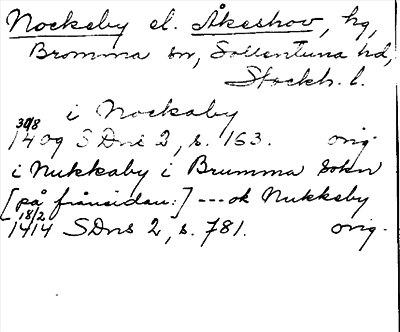 Nockeby el. Åkeshov, hg,
Bromma sn, Sollentuna hd,
Stockh. l.
i Nockaby
30/8
1409 SDns 2, s. 153. orig.
i Nukkaby i Brumma Sokn
[på frånsidan:] --- ok Nukkeby
18/2
1414 SDns 2, s. 781. orig.